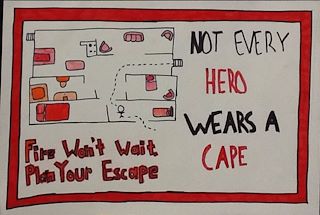 NOT EVERY
HERO
WEARS A
CAPE
Fire Won't Wait
Plan Your Escape